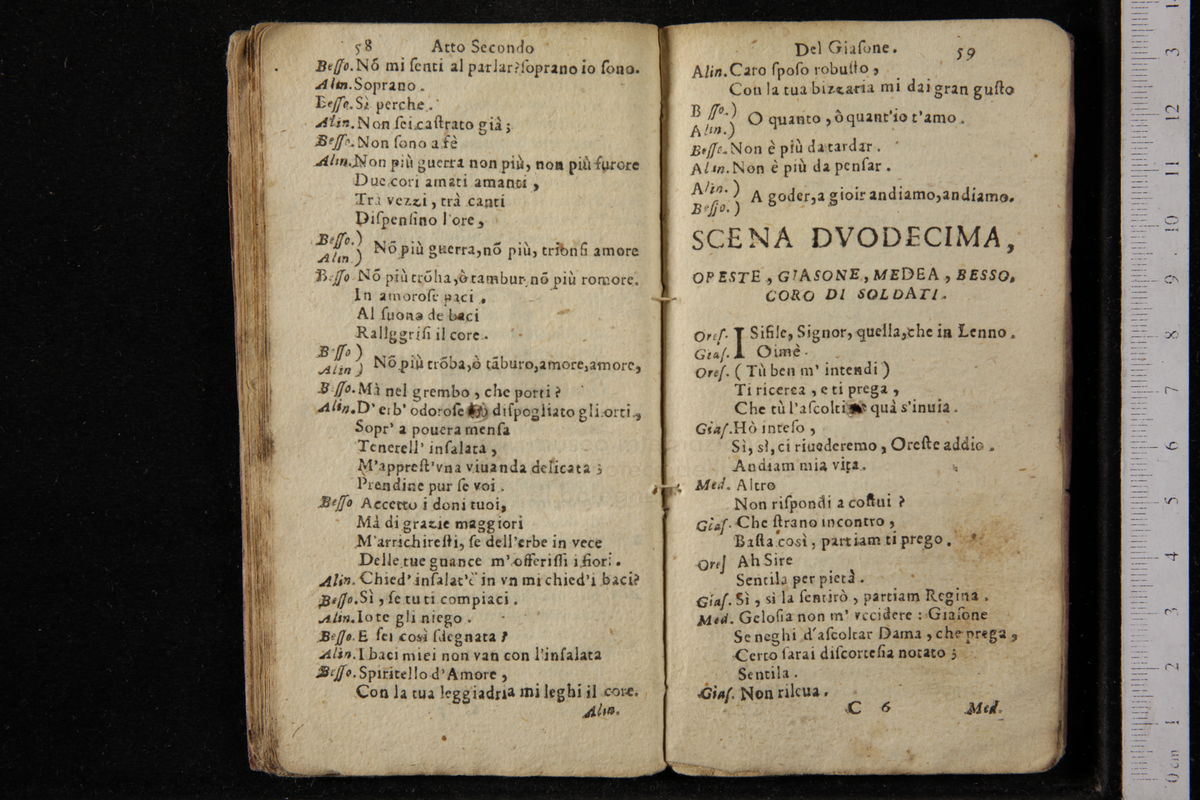 58 Atto Secondo
Beſſo. Nõ mi ſenti al parlar? ſoprano io ſono.
Alin. Soprano.
Beſſo. Sì perche.
Alin. Non ſei caſtrato già;
Beſſo. Non ſono a fè
Alin. Non più guerra non più, non più furore
Due cori amati amanti,
Trà vezzi, trà canti
Diſpenſino l'ore,
Beſſo.)
Alin.) Nõ più guerra, nõ più, trionfi amore
Beſſo Nõ più trõba, ò tambur, nõ più romore.
In amoroſe paci.
Al ſuono de baci
Rallggriſi il core.
Beſſo)
Alin) Nõ più trõba, ò tãburo, amore, amore,
Beſſo. Mà nel grembo, che porti?
Alin. D' erb' odoroſe hò diſpogliato gli orti,
Sopr' a pouera menſa
Tenerell' inſalata,
M'appreſt'vna viuanda delicata;
Prendine pur ſe voi.
Beſſo Accetto i doni tuoi,
Mà di grazie maggiori
M'arrichireſti, ſe dell'erbe in vece
Delle tue guance m'offeriſſi i fiori.
Alin. Chied' inſalat'è in vn mi chied'i baci?
Beſſo. Sì, ſe tu ti compiaci.
Alin. Io te gli niego.
Beſſo. E ſei così ſdegnata?
Alin. I baci miei non van con l'inſalata
Beſſo. Spiritello d'Amore,
Con la tua leggiadria mi leghi il core.
Alin.
Del Giaſone. 59
Alin. Caro ſpoſo robuſto,
Con la tua bizzaria mi dai gran guſto
B ſſo.)
Alin.) O quanto, ò quant'io t'amo.
Beſſo. Non è più da tardar.
Alin. Non è più da penſar.
Alin.)
Beſſo.) A goder, a gioir andiamo, andiamo.
SCENA DVODECIMA,
OPESTE, GIASONE, MEDEA, BESSO,
CORO DI SOLDATI.
Oreſ. ISifile, Signor, quella, che in Lenno.
Giaſ. Oimè.
Oreſ. (Tù ben m' intendi)
Ti ricerca, e ti prega,
Che tù l'aſcolti quà s'inuia.
Giaſ. Hò inteſo,
Sì, sì, ci riuederemo, Oreſte addio.
Andiam mia vita.
Med. Altro
Non riſpondi a coſtui?
Giaſ. Che ſtrano incontro,
Baſta così, partiam ti prego.
Oreſ Ah Sire
Sentila per pietà.
Giaſ. Sì, sì la ſentirò, partiam Regina.
Med. Geloſia non m' vccidere: Giaſone
Se neghi d'aſcoltar Dama, che prega,
Certo ſarai diſcorteſia notato;
Sentila.
Giaſ. Non rileua.
C 6 Med.